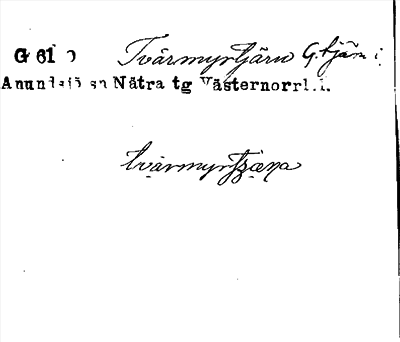 G 61 Tvärmyrtjärn G. tjärn i
Anundsjö sn Nätra tg Västernorrl.l.
tvärmyrtjäṇa